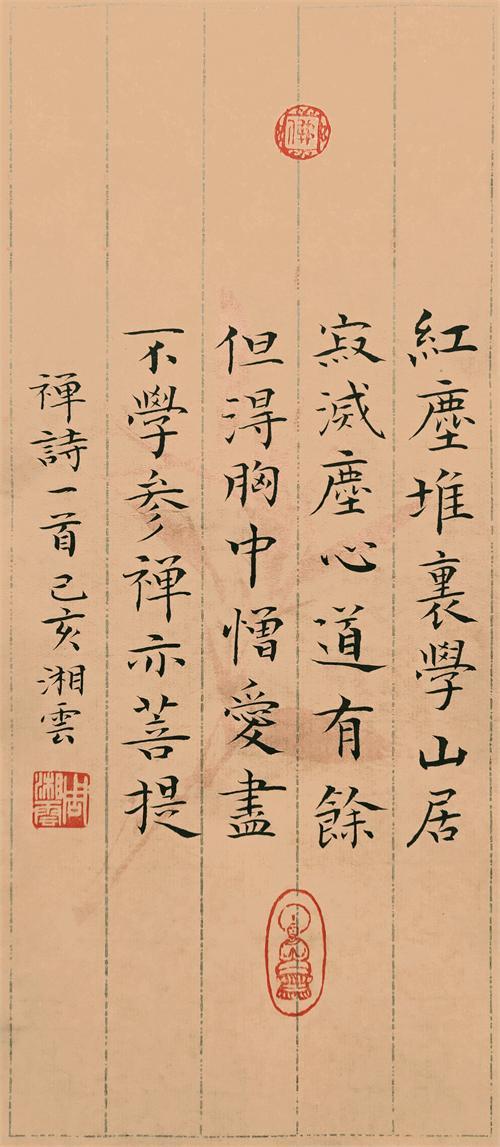 佛
紅塵堆裏學山居
寂滅塵心道有餘
但得胸中憎愛盡
不學參禪亦菩提
禪詩一首己亥湘雲
周湘雲